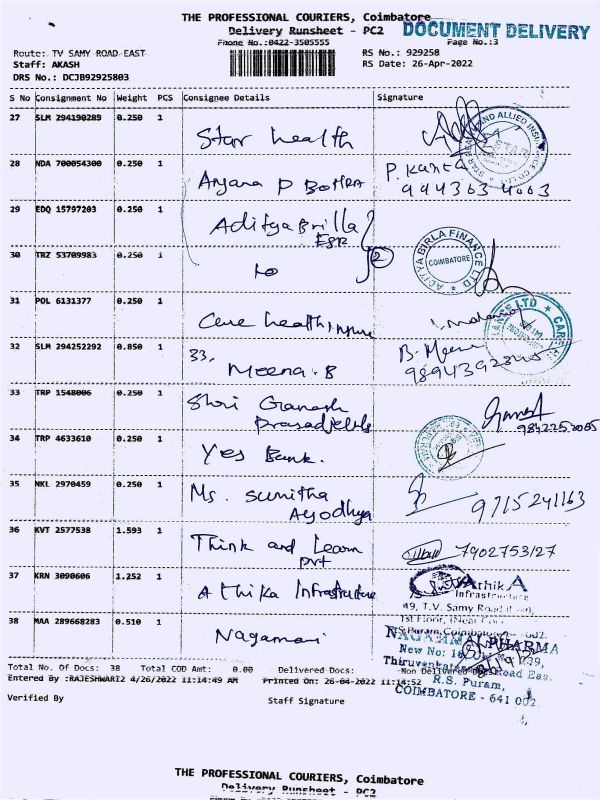 THE PROFESSIONAL COURIERS, Coimbatore
Delivery Runsheet - PC2
DOCUMENT DELIVERY
Phone No.:0422-3505555
Page No.:3
Route: TV SAMY ROAD EAST
RS No.: 929258
Staff: AKASH
RS Date: 26-Apr-2022
DRS No.: DCJB92925803
S No Consignment No Weight PCS Consignee Details Signature
27 SLM 294190289 0.250 1
Star health
28 NDA 700054300 0.250 1
P. Kanta
Anjana P Bothra
29 EDQ 15797203 0.250 1
Aditya Brilla
30 TRZ 53709983 0.250 1
2
to
ADITYA BIRLA FINANCE LTD
COIMBATORE
31 POL 6131377 0.250 1
Care health
32 SLM 294252292 0.850 1
33, Meena.B
B. Meena
33 TRP 1548006 0.250 1
Shri Ganesh
9842252065
34 TRP 4633610 0.250 1
Yes Bank.
35 NKL 2970459 0.250 1
Ms. Sunitha
Ayodhya
9715241163
36 KVT 2577538 1.593 1
Think and Learn
pvt
7902753127
37 KRN 3090606 1.252 1
Athika Infrastructure
Arthika
Infrastructure
#9, T.V. Samy Road (East),
38 MAA 289668283 0.510 1
Nagamani
R.S Puram, Coimbatore
NAGAMMAI PHARMA
New No: 16
R.S. Puram,
COIMBATORE - 641 002.
Total No. Of Docs: 38 Total COD Amt: 0.00 Delivered Docs: Non Delivered Docs:
Entered By :RAJESHWARI2 4/26/2022 11:14:49 AM Printed On: 26-04-2022 11:14:52
Verified By Staff Signature
THE PROFESSIONAL COURIERS, Coimbatore
Delivery Runsheet - PC2